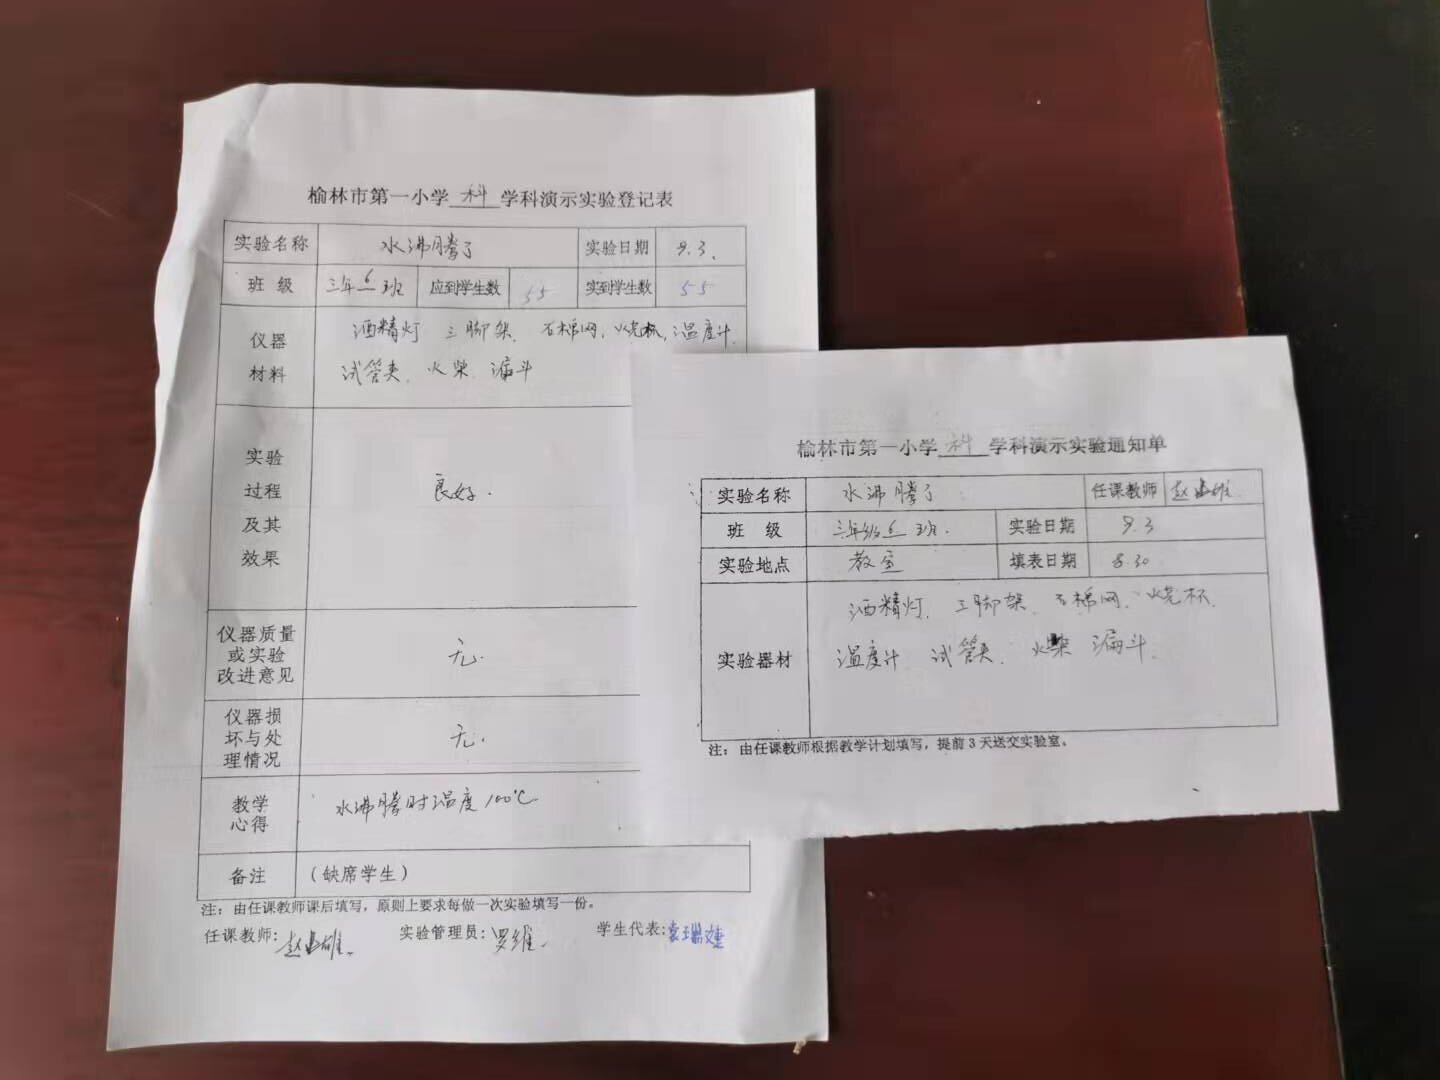 榆林市第一小学 科 学科演示实验登记表
实验名称 水沸腾了 实验日期 9.3.
班 级 三年6班 应到学生数 55 实到学生数 55
仪器材料
酒精灯 三脚架、石棉网、烧杯,温度计.
试管夹、火柴、漏斗
实验
过程
及其
效果
良好.
仪器质量
或实验
改进意见
无.
仪器损
坏与处
理情况
无.
教学
心得
水沸腾时温度100℃
备注 (缺席学生)
注:由任课教师课后填写,原则上要求每做一次实验填写一份。
任课教师: 赵 雄. 实验管理员: 罗维. 学生代表: 袁瑞婕
榆林市第一小学 科 学科演示实验通知单
实验名称 水沸腾了 任课教师 赵 雄.
班 级 三年级6班. 实验日期 9.3
实验地点 教室 填表日期 8.30
实验器材
酒精灯、三脚架、石棉网、烧杯、
温度计 试管夹、火柴 漏斗.
注:由任课教师根据教学计划填写,提前3天送交实验室。